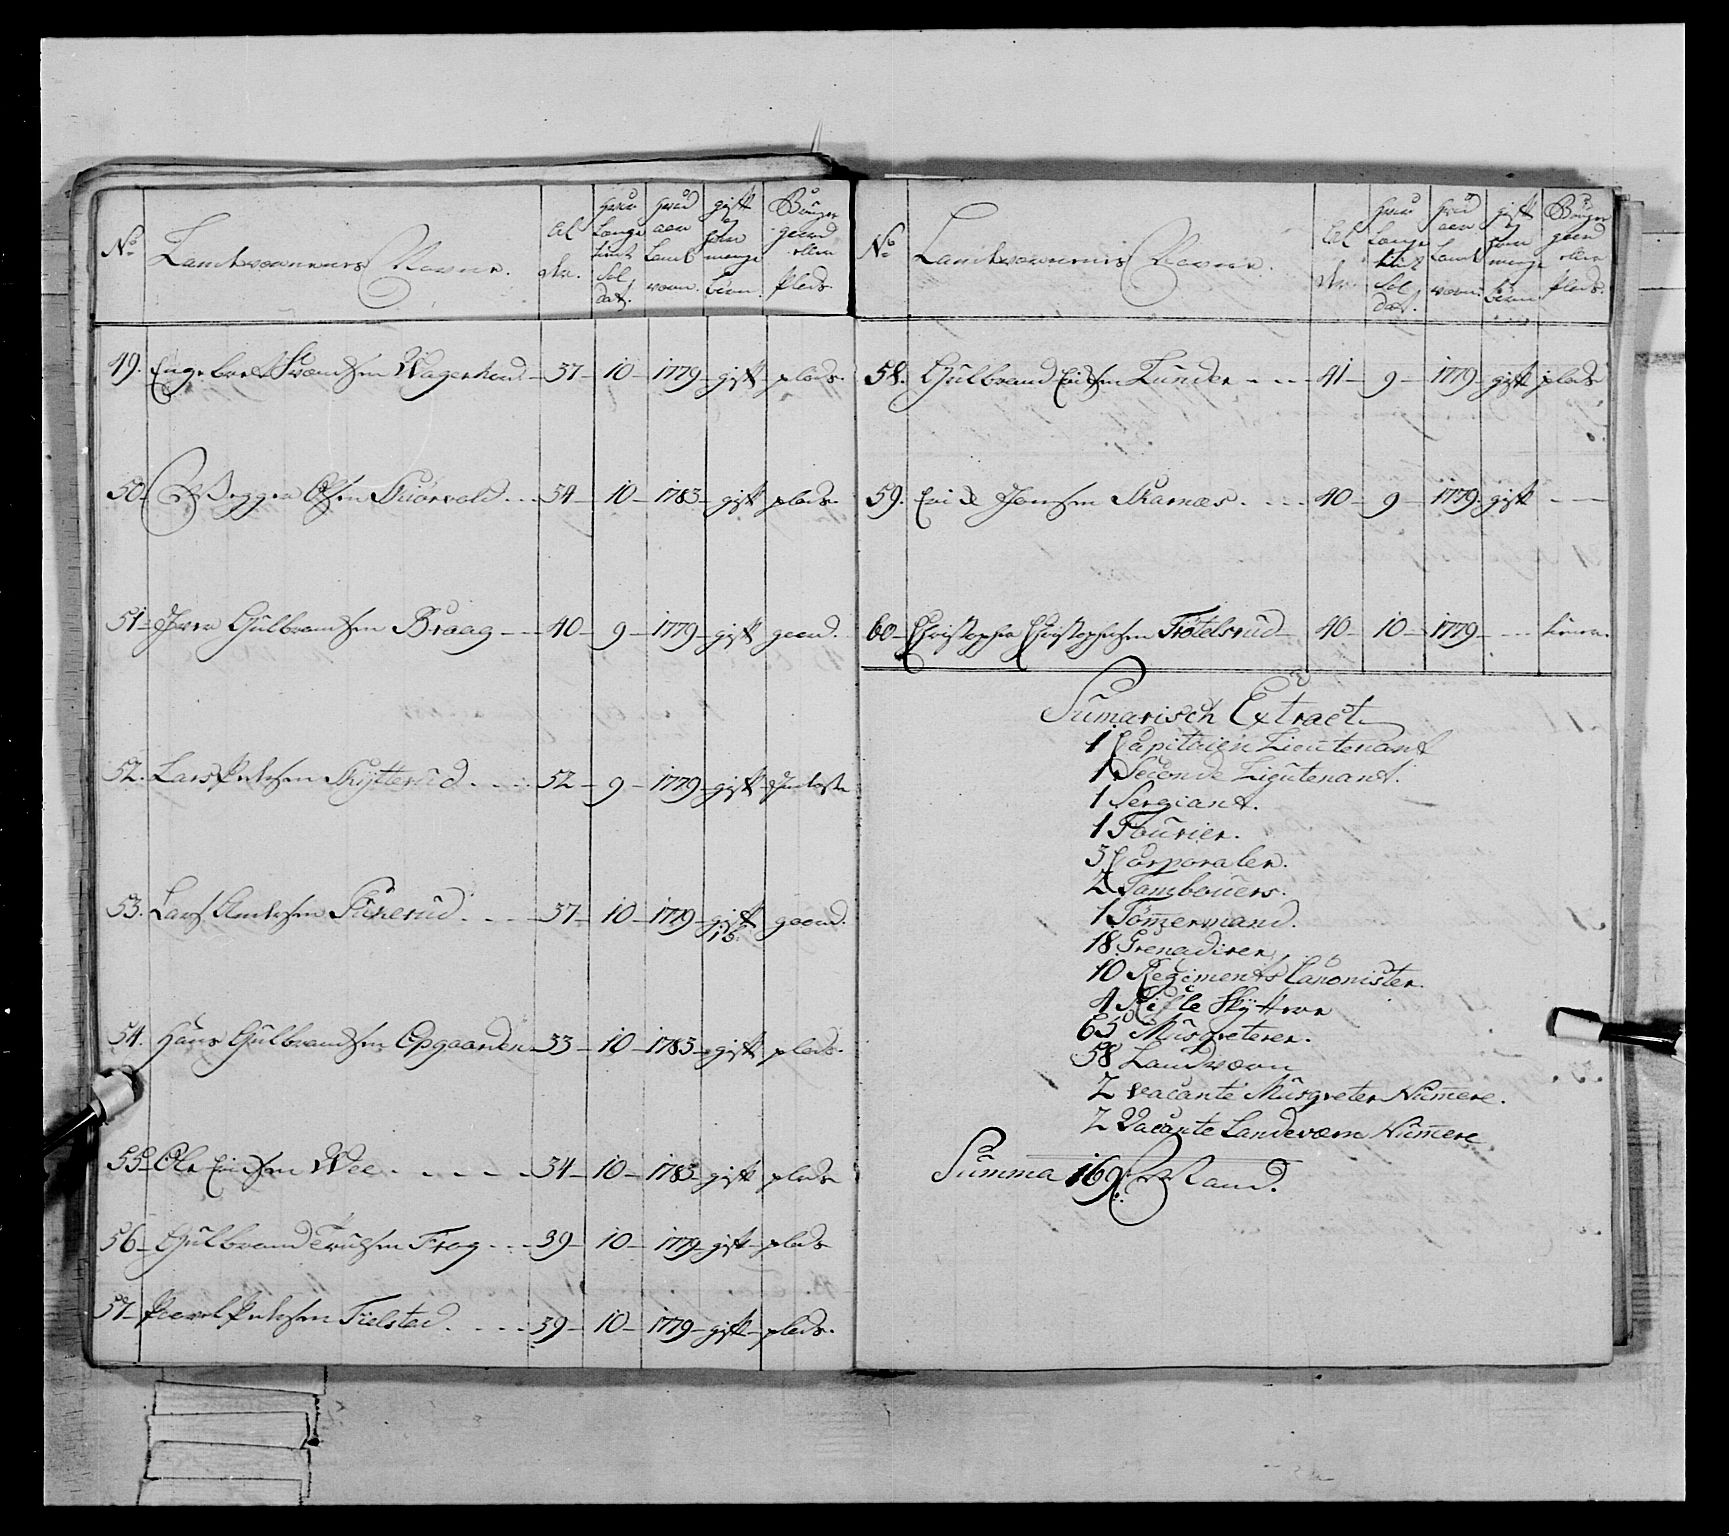 No Landværnernes Navne. Al der. hvor Længe tient Sol dat. hvad aar Land værn. gift og hvor mange börn. Bruger gaard eller Plads.
49. Engebret Svendsen Wagerhoud 37 10 1779 gift plads.
50. Brygger Olsen Skiørvold 34 10 1783 gift plads
51 Iver Gulbrandsen Braag 40 9 1779 gift gaard.
52. Lars Pedersen Skytterud 52 9 1779 gift
53. Lars Andersen Furerud 37 10 1779 gift 1 b. gaard.
54. Hans Gulbrandsen Opgaarden 33 10 1783 gift plads.
55 Ole Erichsen Wee 34 10 1783 gift plads
56 Gulbrand Truulsen Frog 39 10 1779 gift plads
57 Povel Pedersen Fielstad. 39 10 1779 gift plads.
No Landværnernes Navne. Al der. hvor Længe tient Sol dat. hvad aar Land værn. gift og hvor mange börn Bruger gaard eller Plads.
58. Gulbrand Erichsen Lunder 41 9 1779 gift plads
59. Erich Jensen Skarnæs. 40 9 1779 gift
60 Christopher Christophersen Trøtelsrud 40 10 1779
Sumarisch Extract
1 Capitaien Lieutenant
1 Seconde Lieutenant.
1 Sergiant.
1 Fourier.
3 Corporaler.
2 Tambouers.
1 Tömermand.
18 Grenadirer
10 Regiments Canonister.
4 Rifle Skyttere
65 Musqveterer.
58 Landværn
2 vacante Musqveter Numere.
2 Vacante Landeværn Numere
Summa 169 Mand.